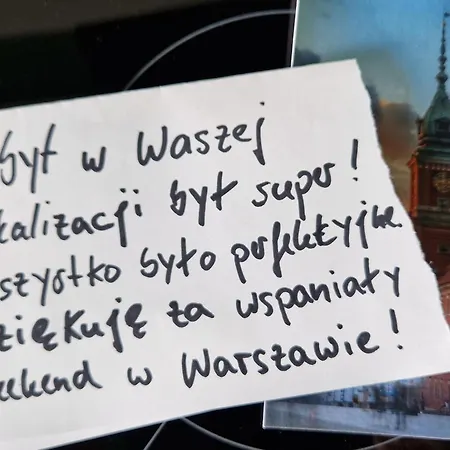 byt w Waszej
kalizacji był super!
szystko było perfekcyjne.
ziękuję za wspaniały
eekend w Warszawie!